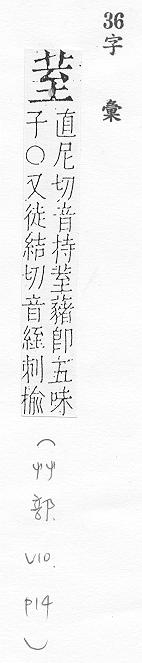 36字彙
荎
直尼切音持荎藸卽五味
子○又徒結切音絰刺榆
（艸部 V10. P14）